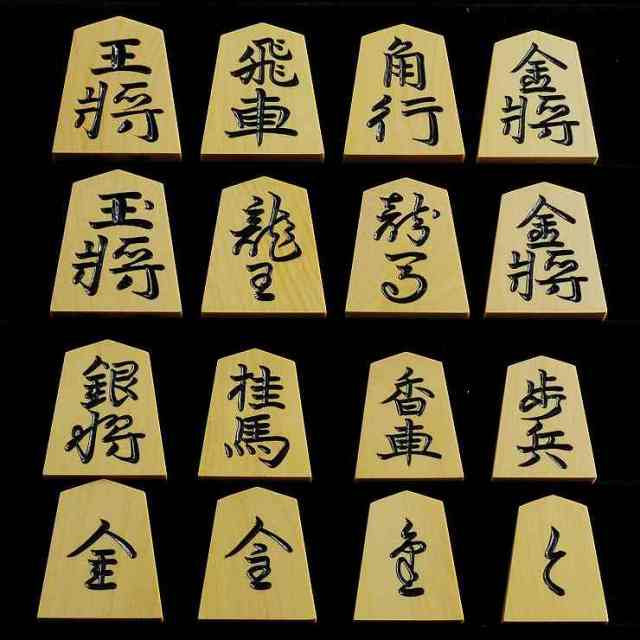 王将
飛車
角行
金将
玉将
龍王
龍馬
金将
銀将
桂馬
香車
歩兵
全
と